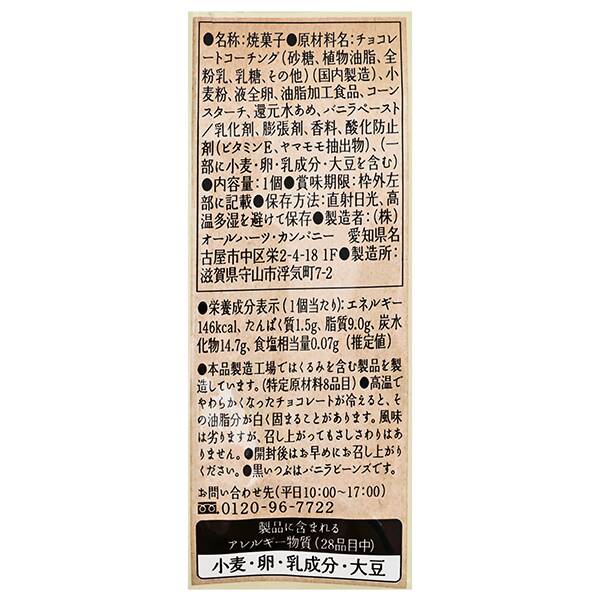 ●名称:焼菓子●原材料名:チョコレ
ートコーチング(砂糖、植物油脂、全
粉乳、乳糖、その他)(国内製造)、小
麦粉、液全卵、油脂加工食品、コーン
スターチ、還元水あめ、バニラペースト
/乳化剤、膨張剤、香料、酸化防止
剤(ビタミンE、ヤマモモ抽出物)、(一
部に小麦・卵・乳成分・大豆を含む)
●内容量:1個●賞味期限:枠外左
部に記載●保存方法:直射日光、高
温多湿を避けて保存●製造者:(株)
オールハーツ・カンパニー 愛知県名
古屋市中区栄2-4-18 1F●製造所:
滋賀県守山市浮気町7-2
●栄養成分表示(1個当たり):エネルギー
146kcal、たんぱく質1.5g、脂質9.0g、炭水
化物14.7g、食塩相当量0.07g(推定値)
●本品製造工場ではくるみを含む製品を製
造しています。(特定原材料8品目)●高温で
やわらかくなったチョコレートが冷えると、そ
の油脂分が白く固まることがあります。風味
は劣りますが、召し上がってもさしさわりはあ
りません。●開封後はお早めにお召し上がり
ください。●黒いつぶはバニラビーンズです。
お問い合わせ先(平日10:00~17:00)
0120-96-7722
製品に含まれる
アレルギー物質(28品目中)
小麦・卵・乳成分・大豆